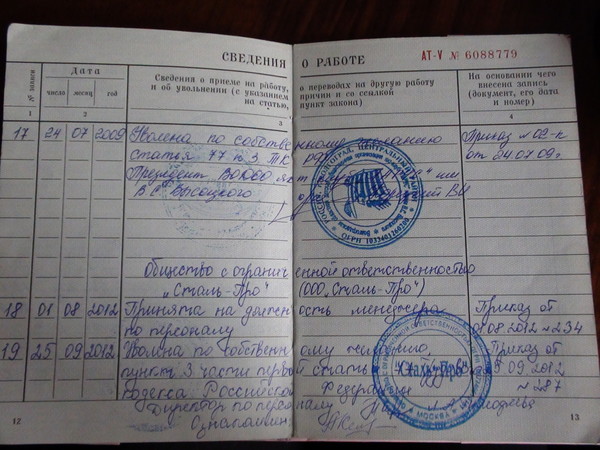 СВЕДЕНИЯ О РАБОТЕ
АТ-V № 6088779
№ записи
Дата
число
месяц
год
Сведения о приеме на работу,
о переводах на другую работу
и об увольнении (с указанием
причин и со ссылкой
на статью,
пункт закона)
На основании чего
внесена запись
(документ, его дата
и номер)
1 2 3 4
17 24 07 2009 Уволена по собственному желанию Приказ № 02-к
статья 77 п 3 ТК РФ от 24.07.09г.
Президент
В.С. Высоцкого
Общество с ограниченной ответственностью
"Сталь-Про" (ООО "Сталь-Про")
18 01 08 2012 Принята на должность менеджера Приказ от
по персоналу 01.08.2012 № 234
19 25 09 2012 Уволена по собственному желанию, Приказ от
пункт 3 части первой статьи 09 2012
Кодекса Российской Федерации № 287
Директор по персоналу
Ознакомлен
12
13
ОГРН
"Сталь-Про"
МОСКВА